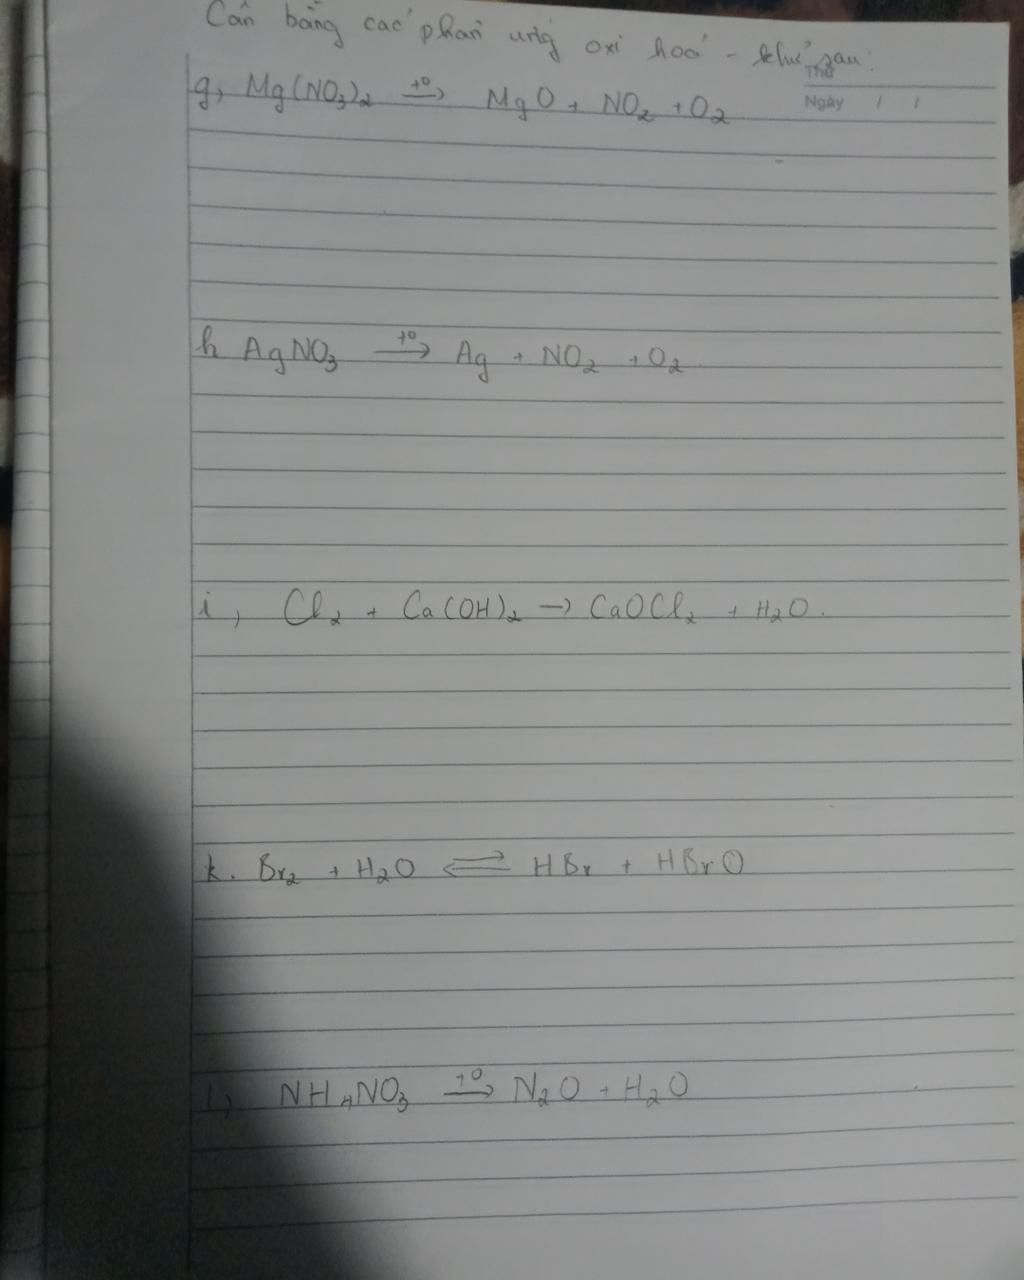 Cân bằng các phản ứng oxi hoá - khử sau:
Thứ
Ngày / /
g, Mg(NO₃)₂ –t⁰→ MgO + NO₂ + O₂
h AgNO₃ –t⁰→ Ag + NO₂ + O₂
i, Cl₂ + Ca(OH)₂ → CaOCl₂ + H₂O.
k. Br₂ + H₂O ⇌ HBr + HBrO
l, NH₄NO₃ –t⁰→ N₂O + H₂O